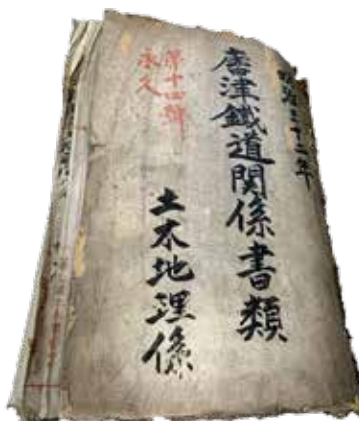 明治三十二年
唐津鐵道關係書類
土木地理係
第十四號
永久